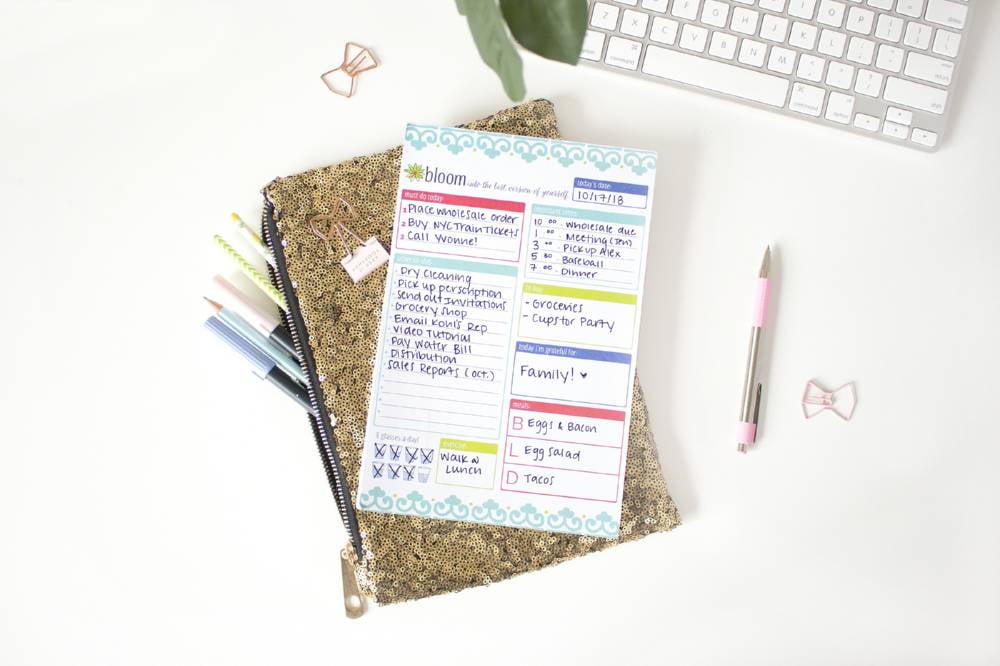 bloom into the best version of yourself
today's date:
10/17/18
must do today
1 Place wholesale order
2 Buy NYC Train Tickets
3 Call Yvonne!
important times
10 00 · Wholesale due
1 00 · Meeting (Jen)
3 00 · Pick up Alex
5 30 · Baseball
7 00 · Dinner
other to-dos
Dry Cleaning
Pick up perscription
Send out Invitations
Grocery Shop
Email Kohl's Rep
Video Tutorial
Pay Water Bill
Distribution
Sales Reports (Oct.)
to buy
- Groceries
- Cups for Party
today I'm grateful for:
Family! ♥
meals:
B Eggs & Bacon
L Egg Salad
D Tacos
8 glasses a day!
exercise:
Walk @
Lunch
Z X C V B N M
command
command
option